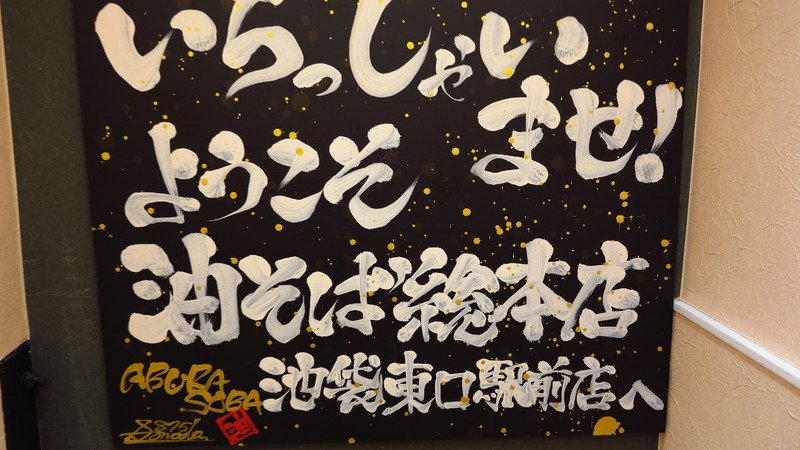 いらっしゃい
ませ!
ようこそ
油そば総本店
池袋東口駅前店へ
ABURA
SOBA